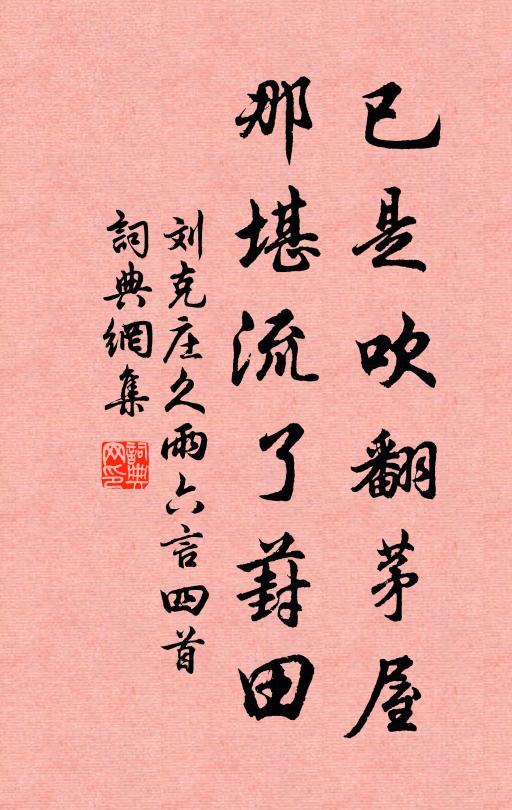 已是吹翻茅屋
那堪流了葑田
刘克庄久雨六言四首
詞典網集
詞典网印